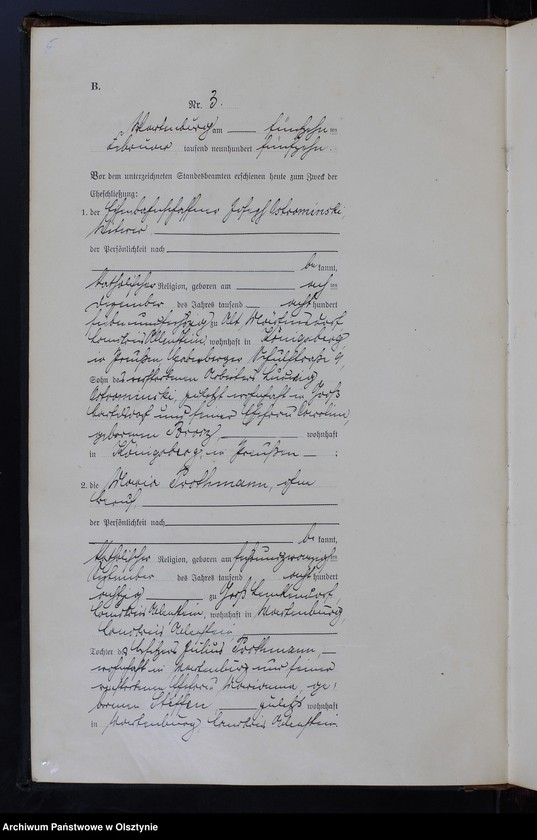 B.
Nr. 3.
Wartenburg am fünfzehn ten
Februar tausend neunhundert fünfzehn.
Vor dem unterzeichneten Standesbeamten erschienen heute zum Zweck der
Eheschließung:
1. der Eisenbahnschaffner Joseph Ostrominski
Witwer
der Persönlichkeit nach
be kannt,
katholischer Religion, geboren am ten
Dezember des Jahres tausend acht hundert
zu Alt Märtinsdorf
Landkreis Allenstein, wohnhaft in Königsberg
in Preußen
Sohn des verstorbenen Arbeiters Ludwig
Ostrominski, zuletzt wohnhaft in Groß
und seiner Ehefrau
geborenen wohnhaft
in Königsberg in Preußen ;
2. die Maria Prothmann, ohne
Beruf,
der Persönlichkeit nach
be kannt,
katholischer Religion, geboren am ten
des Jahres tausend acht hundert
zu Groß Lemkendorf,
Landkreis Allenstein, wohnhaft in Wartenburg,
Landkreis Allenstein,
Tochter des Besitzers Julius Prothmann,
wohnhaft in Wartenburg und seiner
verstorbenen Ehefrau Marianna, ge=
borenen zuletzt wohnhaft
in Wartenburg, Landkreis Allenstein.
Archiwum Państwowe w Olsztynie